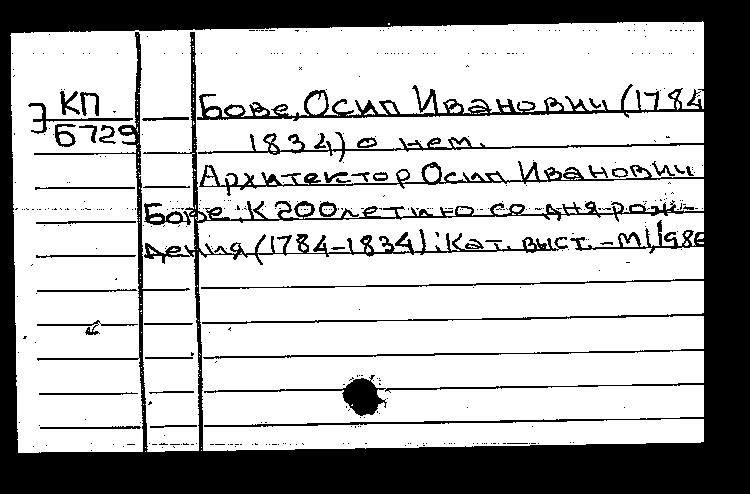 КП
Э Б729
Бове, Осип Иванович (1784
1834) о нем.
Архитектор Осип Иванович
Бове: К 200летию со дня рож-
дения (1784-1834): Кат. выст. - М.,